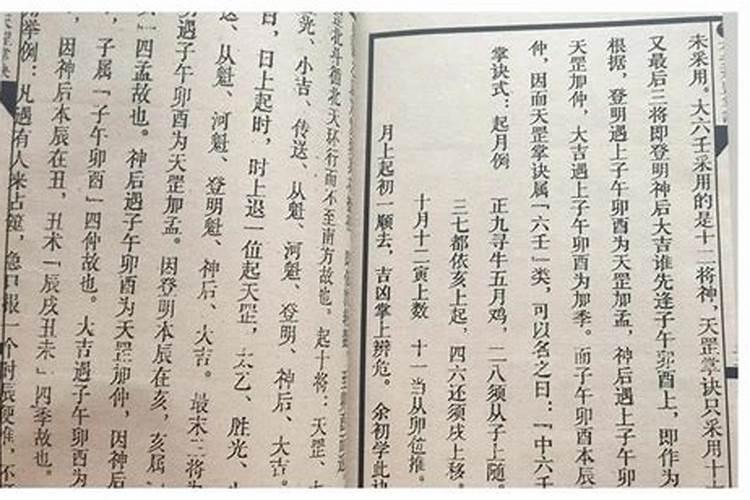 未采用。大六壬采用的是十二将神，天罡掌诀只采用十
又最后三将即登明神后大吉谁先逢子午卯酉上，即作为
根据，登明遇上子午卯酉为天罡加孟，神后遇上子午卯
天罡加仲，大吉遇上子午卯酉为加季。而子午卯酉本辰
仲，因而天罡掌诀属「六壬」类，可以名之曰：「中六壬
掌诀式：起月例 正九寻牛五月鸡，二八须从子上随。
三七都依亥上起，四六还须戌上移。
十月十二寅上数 十一当从卯位推。
月上起初一顺去，吉凶掌上辨危。 余初学此
是北斗循北天环行而不至南方故也。起十将：天罡、
登光、小吉、传送、从魁、河魁、登明、神后、大吉。
日，日上起时，时上退一位起天罡，太乙、胜光、
送、从魁、河魁、登明魁、神后、大吉。 最末三将为
遇子午卯酉为天罡加孟。因登明本辰在亥，亥属
」四孟故也。神后遇子午卯酉为天罡加仲，因神后
子属「子午卯酉」四仲故也。大吉遇子午卯酉为
因神后本辰在丑，丑末「辰戌丑未」四季故也。
举例：凡遇有人来占筮，急口报一个时辰